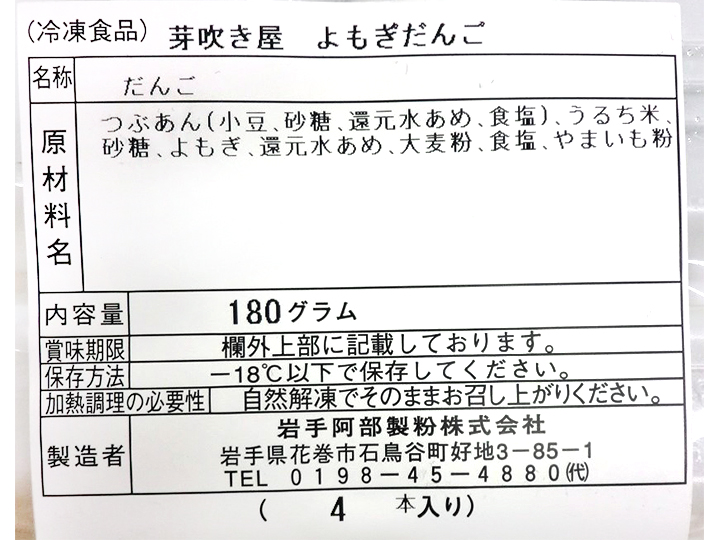 (冷凍食品) 芽吹き屋 よもぎだんご
名称 だんご
原材料名 つぶあん(小豆、砂糖、還元水あめ、食塩)、うるち米、
砂糖、よもぎ、還元水あめ、大麦粉、食塩、やまいも粉
内容量 180グラム
賞味期限 欄外上部に記載しております。
保存方法 −18℃以下で保存してください。
加熱調理の必要性 自然解凍でそのままお召し上がりください。
製造者 岩手阿部製粉株式会社
岩手県花巻市石鳥谷町好地3−85−1
TEL 0198−45−4880㈹
( 4 本入り)